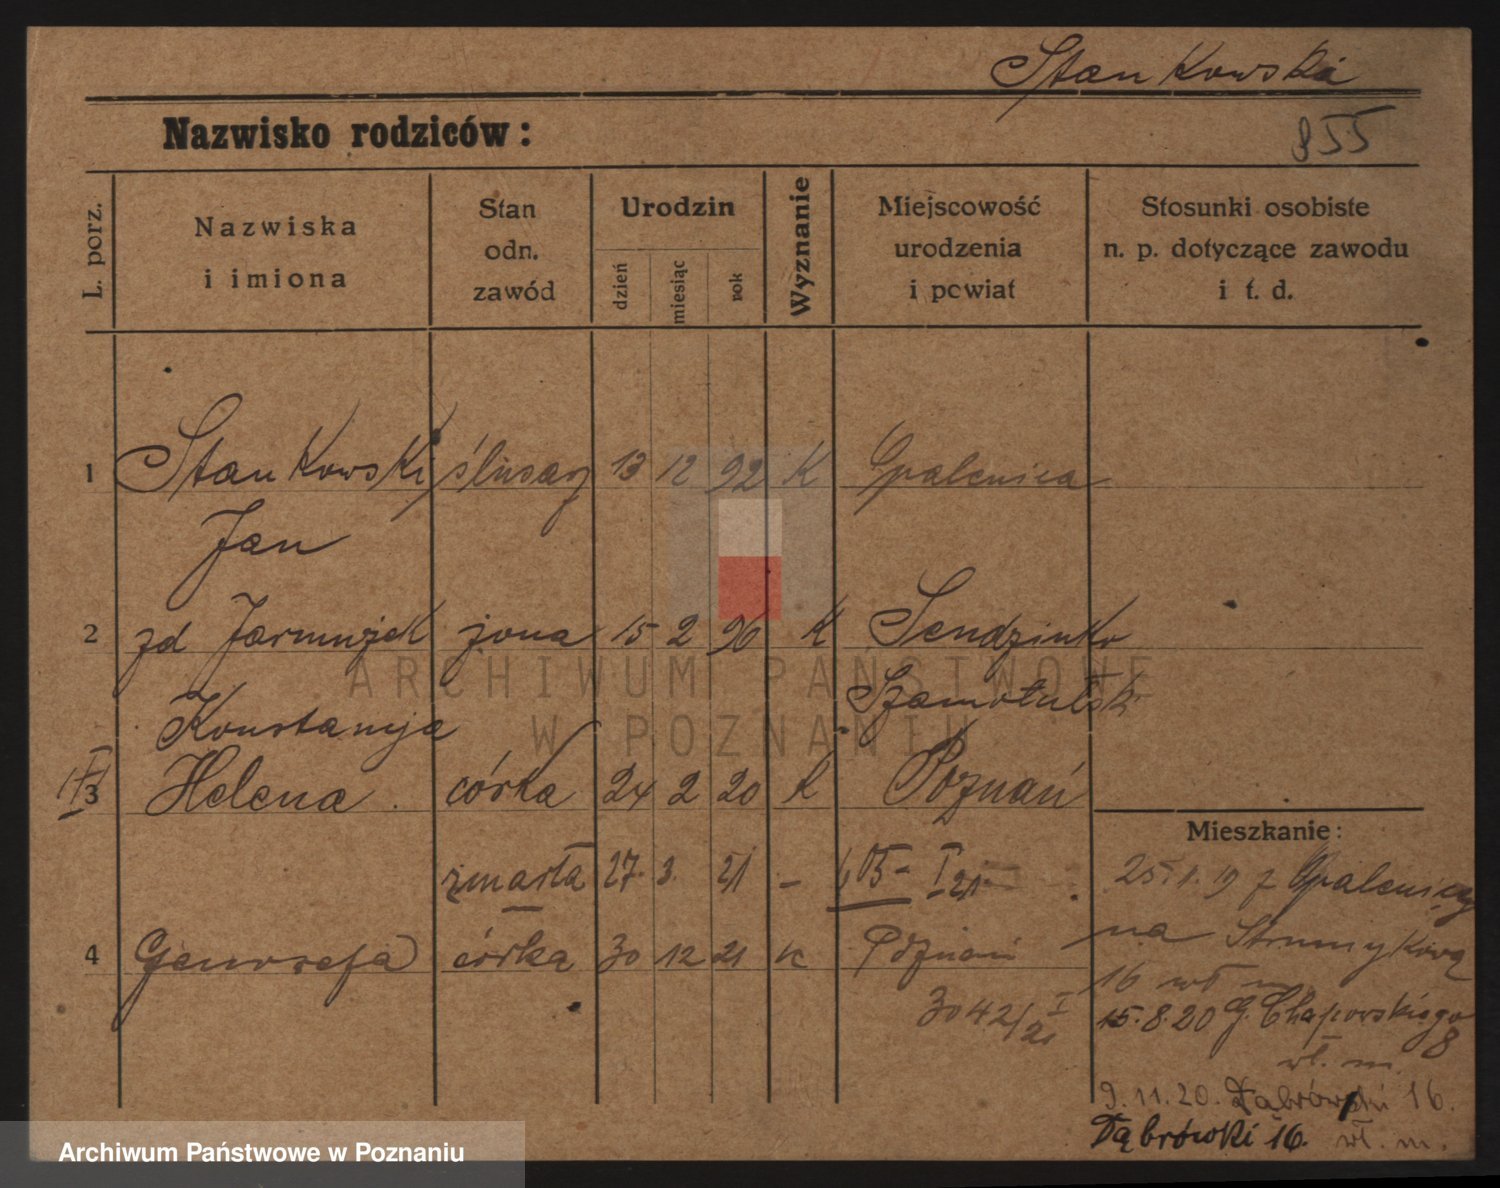 Stankowski
Nazwisko rodziców:
855
L. porz.
Nazwiska
i imiona
Stan
odn.
zawód
Urodzin
dzień
miesiąc
rok
Wyznanie
Miejscowość
urodzenia
i powiat
Stosunki osobiste
n. p. dotyczące zawodu
i t. d.
1 Stankowski ślusarz 13 12 92 K Opalenica
Jan
2 zd Jarmużek żona 15 2 96 K Sendzinko
Szamotulski
Konstancja
3 Helena córka 24 2 20 K Poznań
Mieszkanie:
zmarła 27. 3. 21 – 605 – I 21
25.1.19 z Opalenicy
na Strumykową
4 Genowefa córka 30 12 21 K Poznań
16 wł m
3042/21 I
15.8.20 G. Chłapowskiego 8
wł. m.
9.11.20. Dąbrówki 16.
Dąbrówki 16. wł. m.
ARCHIWUM PAŃSTWOWE
W POZNANIU
Archiwum Państwowe w Poznaniu